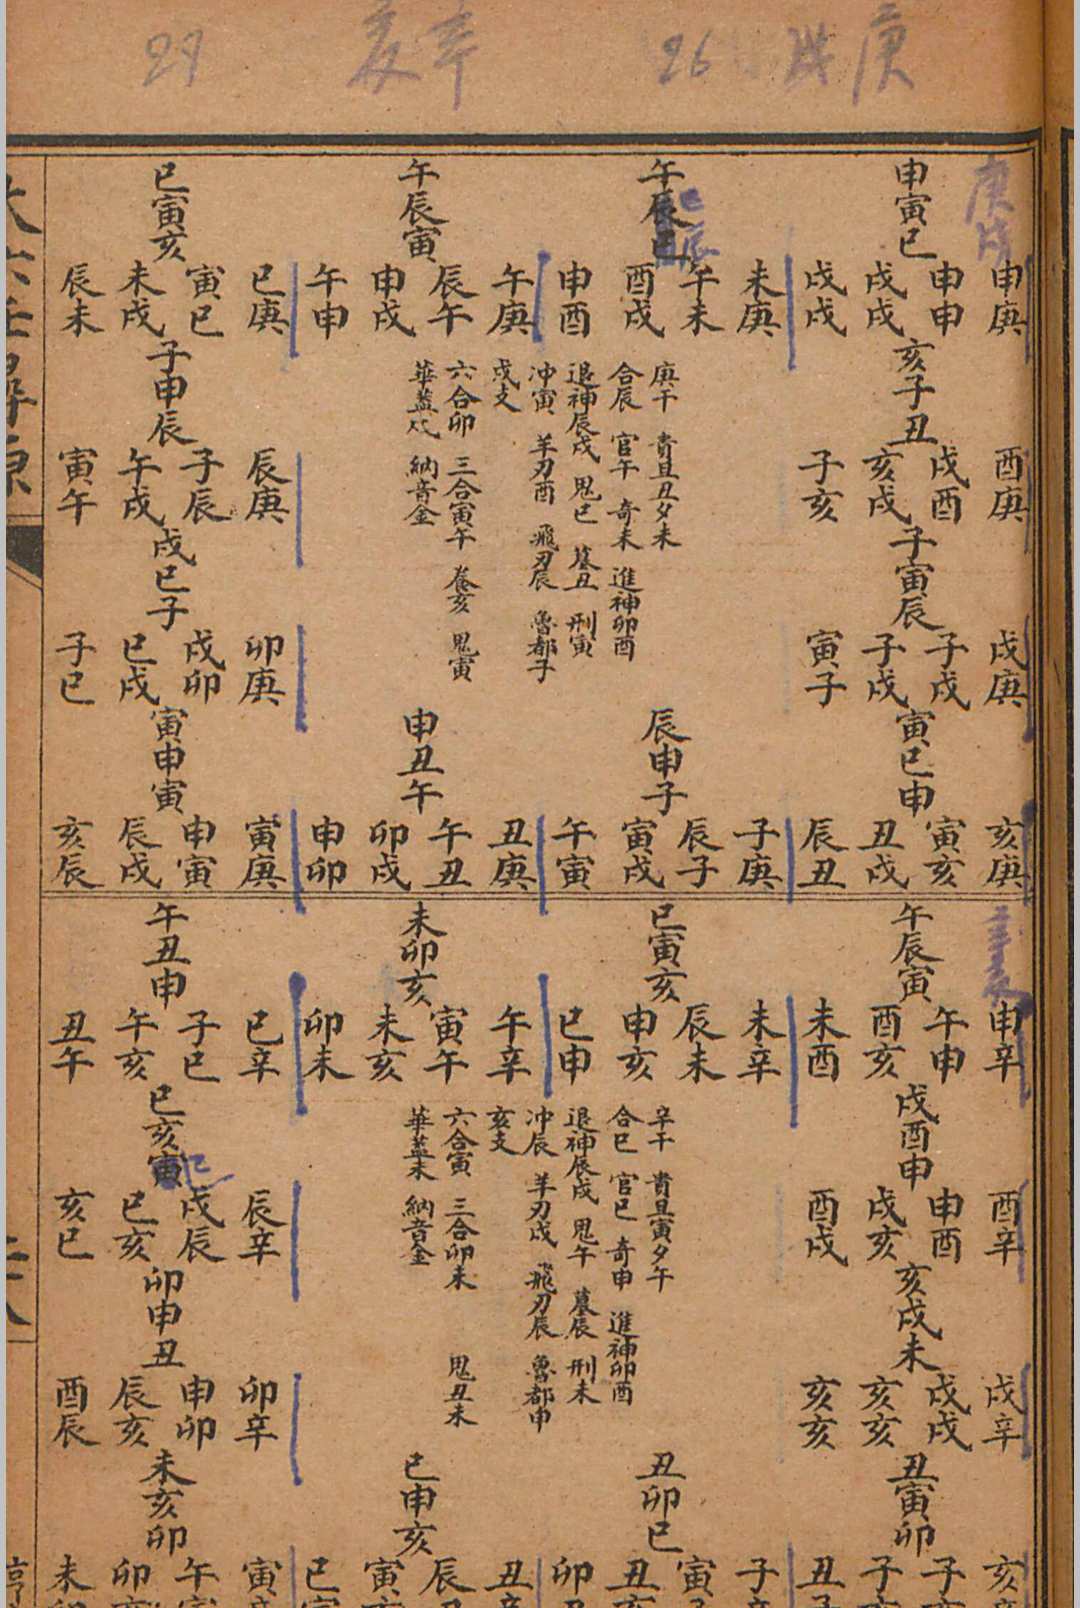 庚戌 26
辛亥 29
庚戌
申寅巳
申庚 申申 戌戌 戌戌
午辰巳
巳辰
未庚 午未 酉戌 申酉
午辰寅
午庚 辰午 申戌 午申
巳寅亥
巳庚 寅巳 未戌 辰未
亥子丑
酉庚 戌酉 亥戌 子亥
子寅辰
戌庚 子戌 子戌 寅子
庚干 貴旦丑夕未
合辰 官午 奇未 進神卯酉
退神辰戌 鬼巳 墓丑 刑寅
冲寅 羊刃酉 飛刃辰 魯都子
戌支
六合卯 三合寅午 養亥 鬼寅
華蓋戌 納音金
子申辰
辰庚 子辰 午戌 寅午
戌巳子
卯庚 戌卯 巳戌 子巳
寅巳申
亥庚 寅亥 丑戌 辰丑
辰申子
子庚 辰子 寅戌 午寅
申丑午
丑庚 午丑 卯戌 申卯
寅申寅
寅庚 申寅 辰戌 亥辰
辛亥
午辰寅
申辛 午申 酉亥 未酉
巳寅亥
未辛 辰未 申亥 巳申
未卯亥
午辛 寅午 未亥 卯未
午丑申
巳辛 子巳 午亥 丑午
戌酉申
酉辛 申酉 戌亥 酉戌
亥戌未
戌辛 戌戌 亥亥 亥亥
辛干 貴旦寅夕午
合巳 官巳 奇申 進神卯酉
退神辰戌 鬼午 墓辰 刑未
冲辰 羊刃戌 飛刃辰 魯都申
亥支
六合寅 三合卯未 鬼丑未
華蓋未 納音金
巳亥寅
巳
辰辛 戌辰 巳亥 亥巳
卯申丑
卯辛 申卯 辰亥 酉辰
丑寅卯
亥 子 子 丑
丑卯巳
子 寅 丑 卯
巳申亥
丑 辰 寅 巳
未亥卯
寅 午 卯 未